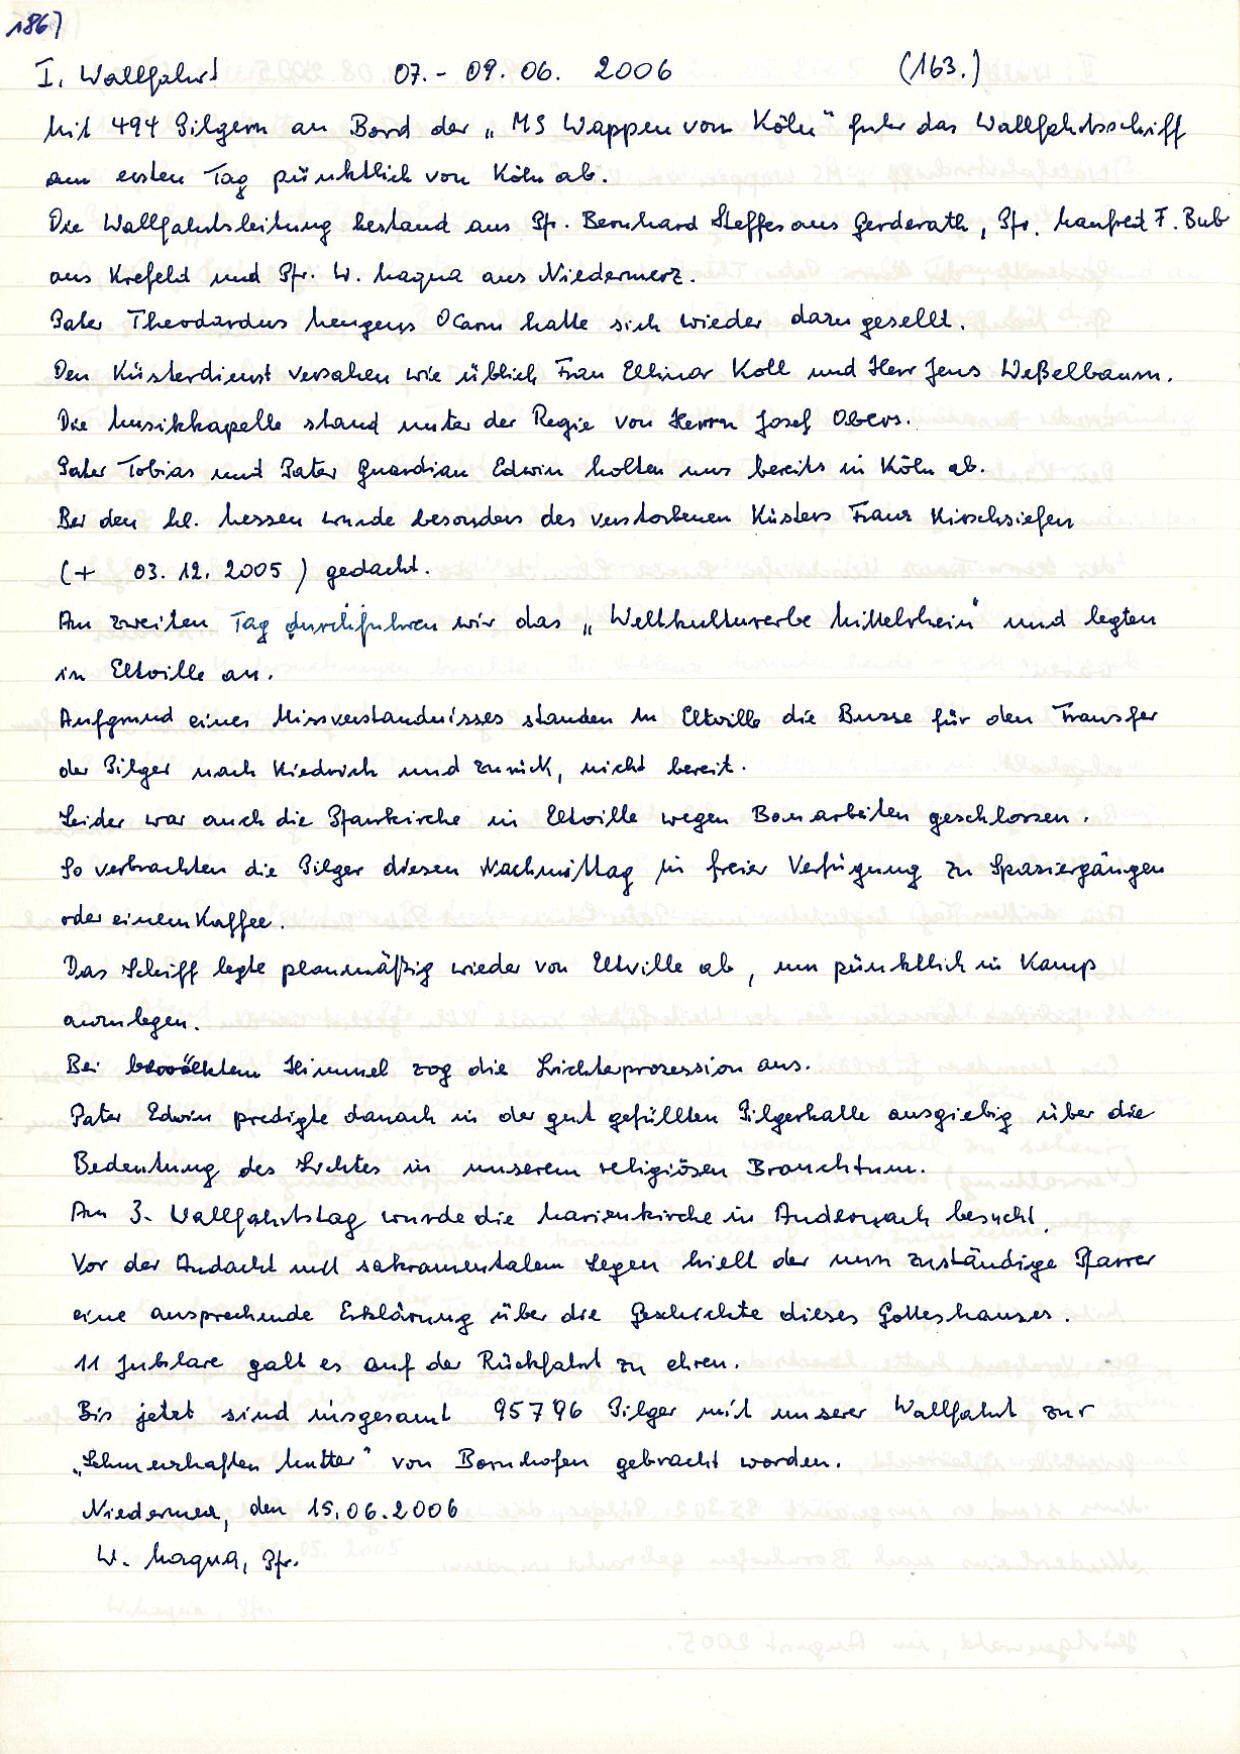 186)
I. Wallfahrt 07.- 09.06. 2006 (163.)
Mit 494 Pilgern an Bord der „MS Wappen von Köln" fuhr das Wallfahrtsschiff
am ersten Tag pünktlich von Köln ab.
Die Wallfahrtsleitung bestand aus Pfr. Bernhard Steffes aus Gerderath, Pfr. Manfred F. Bub
aus Krefeld und Pfr. W. Maqua aus Niedermerz.
Pater Theodardus Mengens OCarm hatte sich wieder dazu gesellt.
Den Küsterdienst versahen wie üblich Frau Ellinor Koll und Herr Jens Weßelbaum.
Die Musikkapelle stand unter der Regie von Herrn Josef Obers.
Pater Tobias und Pater Guardian Edwin holten uns bereits in Köln ab.
Bei den hl. Messen wurde besonders des verstorbenen Küsters Franz Kirschsiefen
(+ 03.12.2005) gedacht.
Am zweiten Tag durchfuhren wir das „Weltkulturerbe Mittelrhein" und legten
in Eltville an.
Aufgrund eines Missverständnisses standen in Eltville die Busse für den Transfer
der Pilger nach Kiedrich und zurück, nicht bereit.
Leider war auch die Pfarrkirche in Eltville wegen Bauarbeiten geschlossen.
So verbrachten die Pilger diesen Nachmittag in freier Verfügung zu Spaziergängen
oder einem Kaffee.
Das Schiff legte planmäßig wieder von Eltville ab, um pünktlich in Kamp
anzulegen.
Bei bewölktem Himmel zog die Lichterprozession aus.
Pater Edwin predigte danach in der gut gefüllten Pilgerhalle ausgiebig über die
Bedeutung des Lichtes in unserem religiösen Brauchtum.
Am 3. Wallfahrtstag wurde die Marienkirche in Andernach besucht.
Vor der Andacht mit sakramentalem Segen hielt der nun zuständige Pfarrer
eine ansprechende Erklärung über die Geschichte dieses Gotteshauses.
11 Jubilare galt es auf der Rückfahrt zu ehren.
Bis jetzt sind insgesamt 95796 Pilger mit unserer Wallfahrt zur
„Schmerzhaften Mutter" von Bornhofen gebracht worden.
Niedermerz, den 15.06.2006
W. Maqua, Pfr.